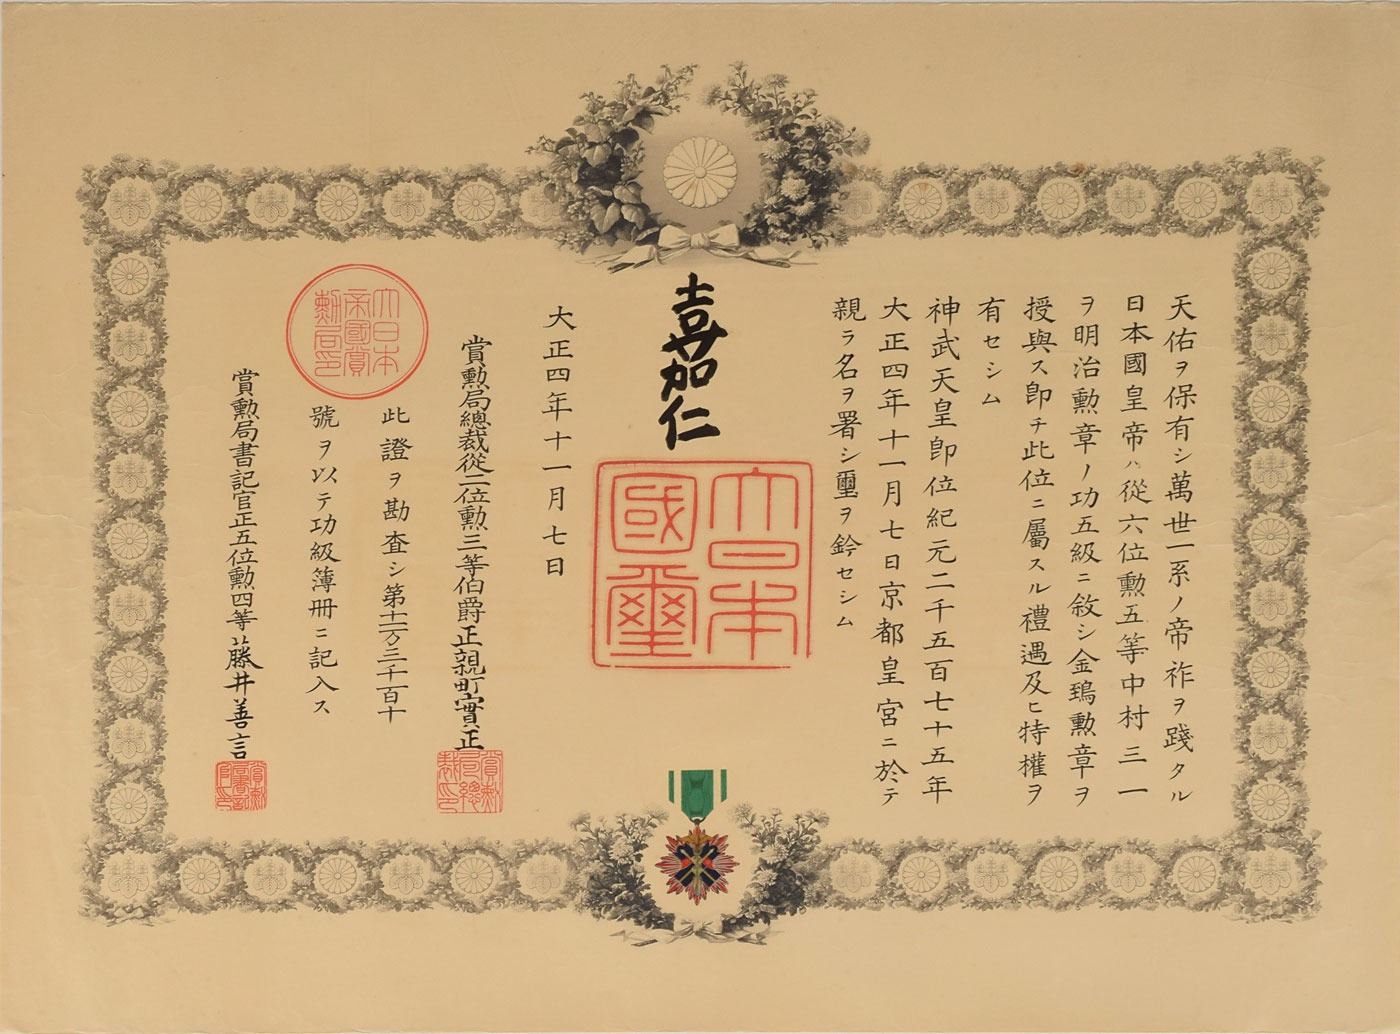 天佑ヲ保有シ萬世一系ノ帝祚ヲ踐タル
日本國皇帝ハ從六位勲五等中村三一
ヲ明治勲章ノ功五級ニ敘シ金鵄勲章ヲ
授與ス卽チ此位ニ屬スル禮遇及ヒ特權ヲ
有セシム
神武天皇卽位紀元二千五百七十五年
大正四年十一月七日京都皇宮ニ於テ
親ラ名ヲ署シ璽ヲ鈐セシム
嘉仁
大日本
國璽
大正四年十一月七日
賞勲局總裁從二位勲三等伯爵正親町實正
賞勲局總裁印
此證ヲ勘査シ第十一万三千百十
號ヲ以テ功級簿册ニ記入ス
大日本
帝國賞
勲局印
賞勲局書記官正五位勲四等藤井善言